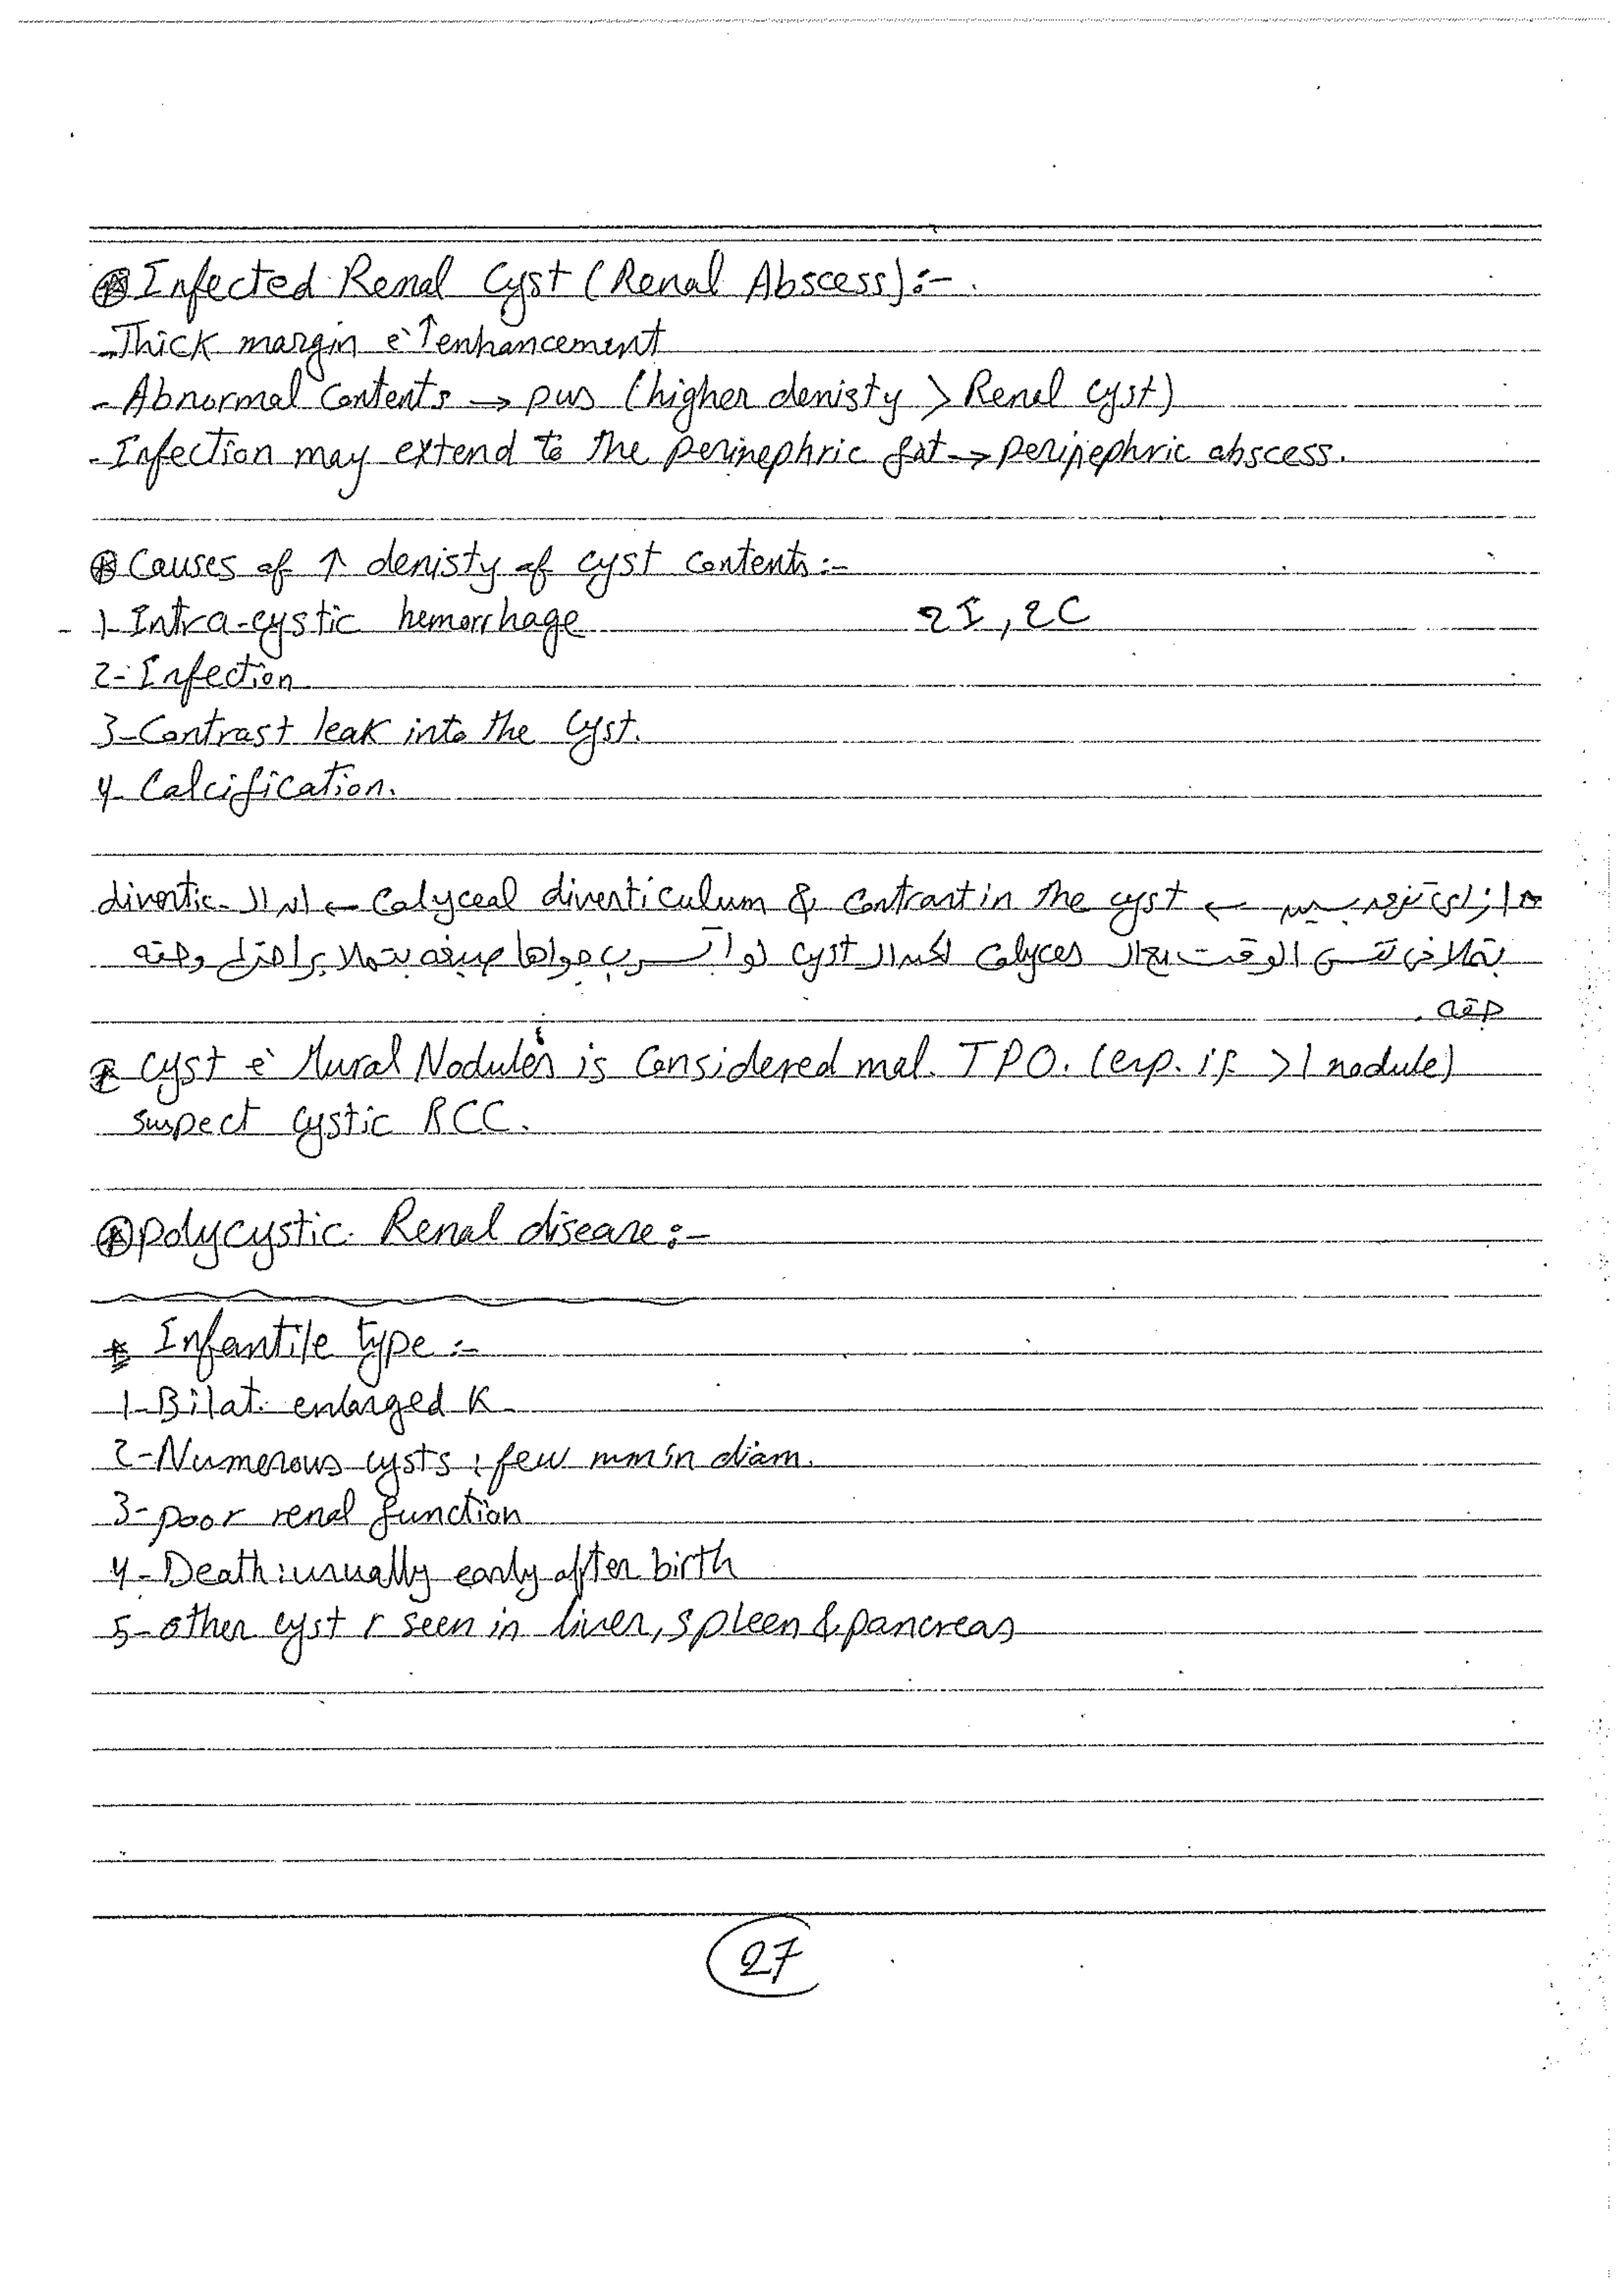 ⊛ Infected Renal Cyst (Renal Abscess):-
- Thick margin è ↑ enhancement
- Abnormal Contents → pus (higher denisty > Renal cyst)
- Infection may extend to the perinephric fat → perinephric abscess.
⊛ Causes of ↑ denisty of cyst contents:-
1- Intra-cystic hemorrhage 2I, 2C
2- Infection
3- Contrast leak into the cyst.
4- Calcification.
* ازاى تفرقه بين ← calyceal diverticulum & contrast in the cyst ← ال divertic.
بتملا فى نفس الوقت مع ال calyces لكن ال cyst لو اتسرب جواها صبغه بتملا براحتها وحته
حته.
* Cyst è Mural Nodules is considered mal. TPO. (esp. if > 1 nodule)
suspect cystic RCC.
⊛ polycystic Renal disease:-
* Infantile type:-
1- Bilat. enlarged K
2- Numerous cysts; few mm in diam.
3- poor renal function
4- Death: usually early after birth
5- other cyst r seen in liver, spleen & pancreas
27